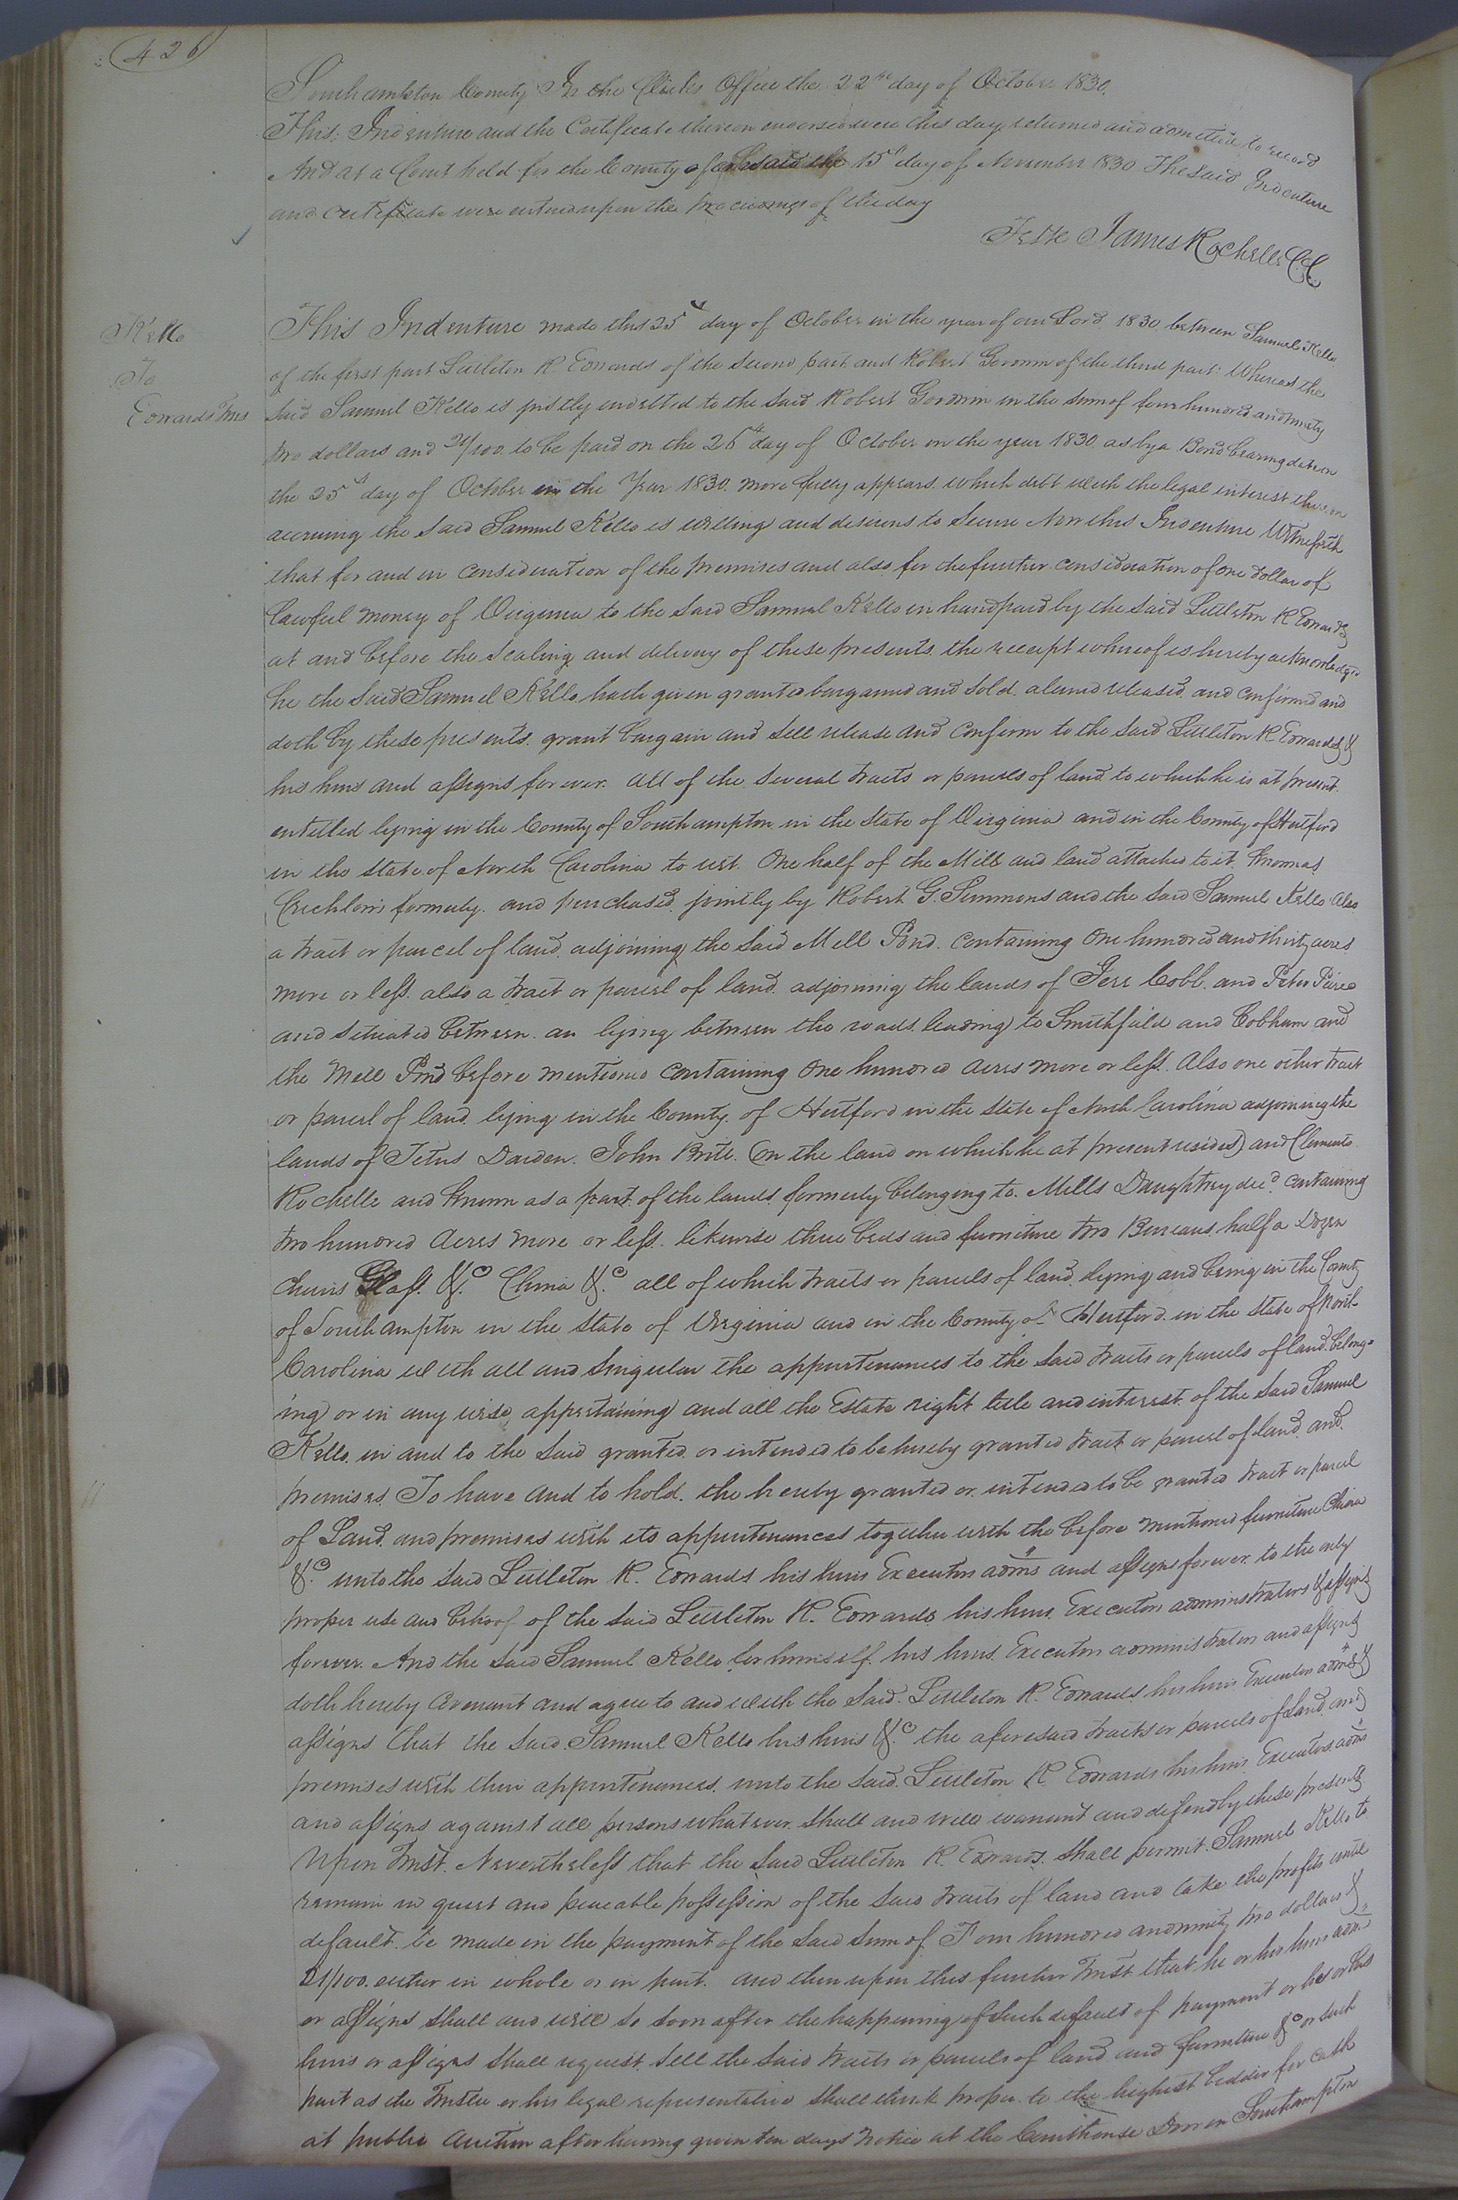 426
Southampton County In the Clerks Office the 22nd day of October 1830.
This Indenture and the Certificate thereon endorsed were this day returned and admitted to record
And at a Court held for the County aforesaid the 15th day of November 1830 The said Indenture
and Certificate were entered upon the proceedings of the day
Teste James Rochelle CC
Kello
To
Edwards Trus
This Indenture made this 25th day of October in the year of our Lord 1830 between Samuel Kello
of the first part Littleton R Edwards of the second part and Robert Goodwin of the third part: Whereas the
said Samuel Kello is justly indebted to the said Robert Goodwin in the sum of four hundred and ninety
two dollars and 21/100 to be paid on the 26th day of October in the year 1830 as by a Bond bearing date on
the 25th day of October in the Year 1830 more fully appears. which debt with the legal interest thereon
accruing the said Samuel Kello is willing and desirous to secure Now this Indenture Witnesseth
that for and in consideration of the premises and also for the further consideration of one dollar of
lawful money of Virginia to the said Samuel Kello in hand paid by the said Littleton R Edwards
at and before the sealing and delivery of these presents. the receipt whereof is hereby acknowledged
he the said Samuel Kello. hath given granted bargained and sold. aliened released. and confirmed and
doth by these presents. grant bargain and sell release and confirm to the said Littleton R Edwards &
his heirs and assigns forever. all of the several tracts or parcels of land to which he is at present
entitled lying in the County of Southampton in the State of Virginia and in the County of Hertford
in the State of North Carolina to wit. One half of the Mill and land attached to it known as
Crichlow's formerly. and purchased jointly by Robert G. Simmons and the said Samuel Kello also
a tract or parcel of land. adjoining the said Mill Pond. containing one hundred and thirty acres
more or less. also a tract or parcel of land. adjoining the lands of Jere Cobb. and Peter Pierce
and situated between. an lying between the roads leading to Smithfield and Cobham and
the Mill Pond before mentioned containing One hundred acres more or less. Also one other tract
or parcel of land. lying in the County. of Hertford in the State of North Carolina adjoining the
lands of Titus Darden. John Brite. (on the land on which he at present resides) and Clements
Rochelle and known as a part. of the lands formerly belonging to. Mills Daughtrey decd. containing
two hundred Acres more or less. likewise three beds and furniture two Bureaus. half a Dozen
chairs Glass. &c. China &c. all of which tracts or parcels of land. lying and being in the County
of Southampton in the State of Virginia and in the County of Hertford. in the State of North
Carolina with all and singular the appurtenances to the said tracts or parcels of land. belong-
ing or in any wise appertaining and all the Estate right title and interest of the said Samuel
Kello. in and to the said granted. or intended to be hereby granted tract or parcel of land. and.
premises. To have and to hold. the hereby granted or intended to be granted tract or parcel
of Land. and premises with its appurtenances together with the before mentioned furniture China
&c. unto the said Littleton R. Edwards his heirs Executors admrs and assigns forever. to the only
proper use and behoof of the said Littleton R. Edwards his heirs Executors administrators & assigns
forever. And the said Samuel Kello for himself. his heirs. Executors administrators and assigns
doth hereby covenant and agree to and with the said. Littleton R. Edwards his heirs Executors admrs &
assigns that the said. Samuel Kello his heirs &c. the aforesaid tracts or parcels of land. and
premises with their appurtenances. unto the said. Littleton R Edwards his heirs. Executors. admrs
and assigns against all persons whatever shall and will warrant and defend by these presents
Upon Trust. Nevertheless that the said Littleton R. Edwards. shall permit. Samuel Kello to
remain in quiet and peaceable possession of the said tracts of land and take the profits until
default. be made in the payment of the said sum of Four hundred and ninety two dollars &
21/100. either in whole or in part. and then upon this further Trust that he or his heirs admrs
or assigns shall and will so soon after the happening of such default of payment or he or his
heirs or assigns shall request. sell the said tracts or parcels of land and furniture &c or such
part as the Trustee or his legal representative shall think proper to the highest bidder for cash
at public Auction after having given ten days notice at the Courthouse Door in Southampton